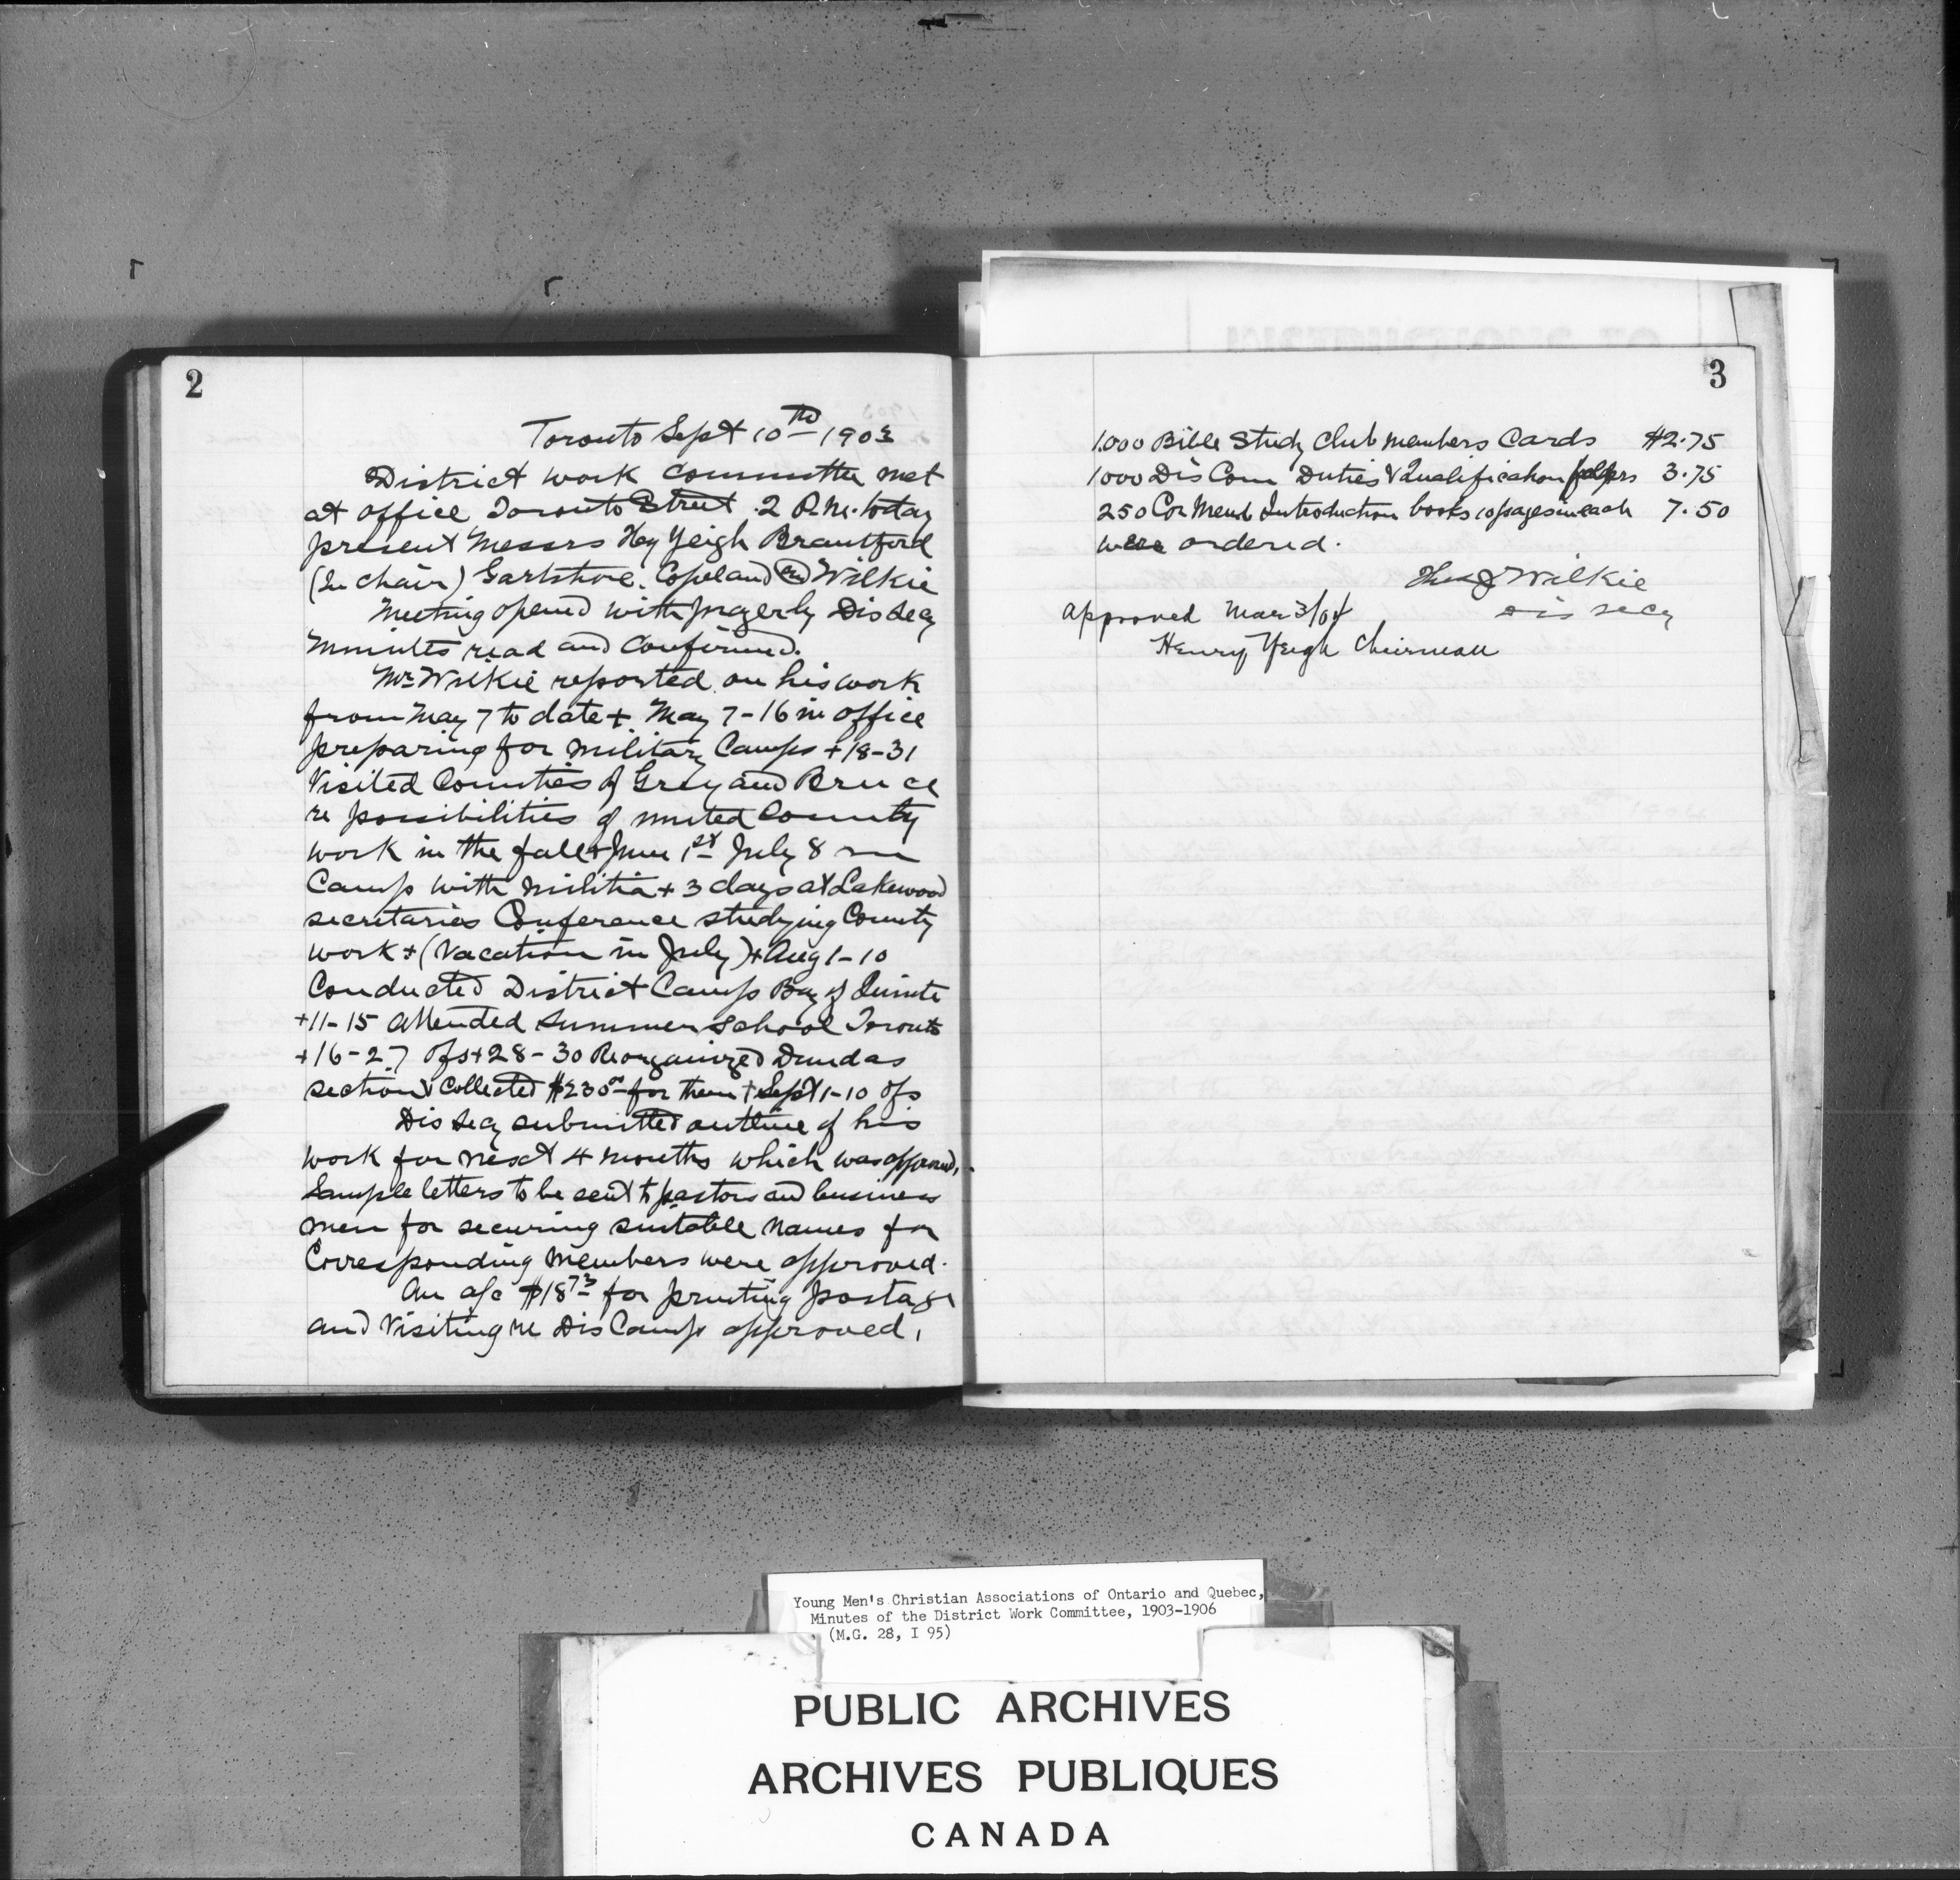 2
Toronto Sept 10th 1903
District work committee met
at office Toronto Street 2 P.M. today
present Messrs Hy Yeigh Brantford
(In chair) Gartshore. Copeland and Wilkie
Meeting opened with prayer by Dis Secy
Minutes read and confirmed.
Mr Wilkie reported on his work
from May 7 to date + May 7-16 in office
preparing for Military Camps + 18-31
Visited Counties of Grey and Bruce
re possibilities of united County
work in the fall + June 1st July 8 in
Camp with Militia + 3 days at Lakewood
secretaries Conference studying County
work + (Vacation in July) + Aug 1-10
Conducted District Camp Bay of Quinte
+ 11-15 Attended Summer School Toronto
+ 16-27 Ofs + 28-30 Reorganized Dundas
section & Collected $230 00 for them + Sept 1-10 Ofs
Dis Secy submitted outline of his
work for next 4 months which was approved.
Sample letters to be sent to pastors and business
men for securing suitable names for
Corresponding Members were approved.
An a/c $18 73 for printing postage
and Visiting re Dis Camp approved.
3
1.000 Bible Study Club members Cards $2.75
1000 Dis Com Duties & Qualification 3.75
250 Cor Memb Introduction books 10 pages in each 7.50
were ordered.
Thos J Wilkie
Dis Secy
approved Mar 3/04
Henry Yeigh Chairman
Young Men's Christian Associations of Ontario and Quebec,
Minutes of the District Work Committee, 1903-1906
(M.G. 28, I 95)
PUBLIC ARCHIVES
ARCHIVES PUBLIQUES
CANADA